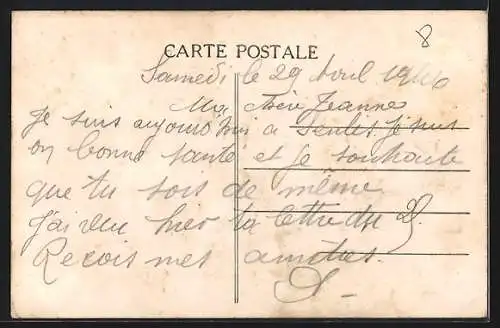 8
CARTE POSTALE
Samedi le 29 Avril 1916
Ma Chère Jeanne
Je suis aujourd'hui a Senlis. Je suis
en bonne santé et je souhaite
que tu sois de même
J'ai reçu hier ta lettre du 25
Reçois mes amitiés.